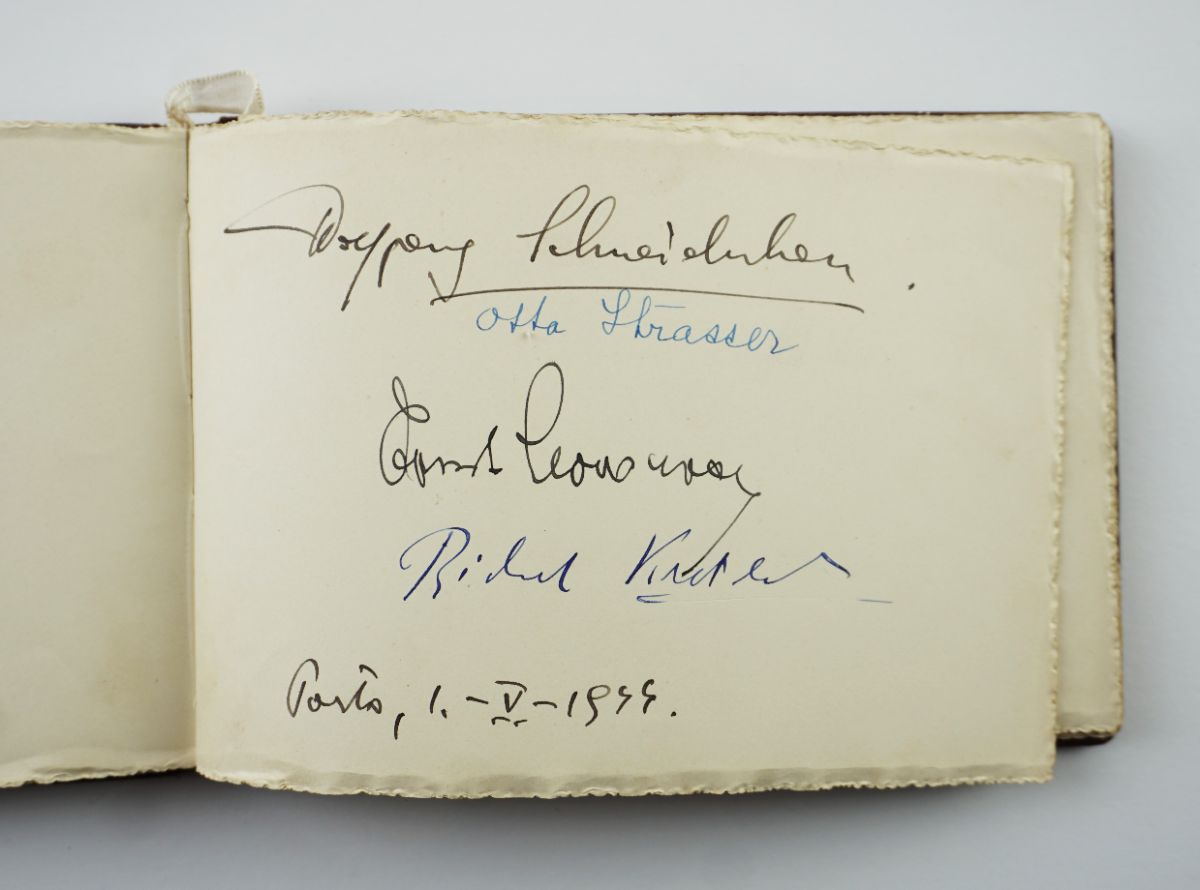 Wolfgang Schneiderhan.
Otto Strasser
Ernst Morawec
Richard Krotschak
Porto, 1.-V-1944.